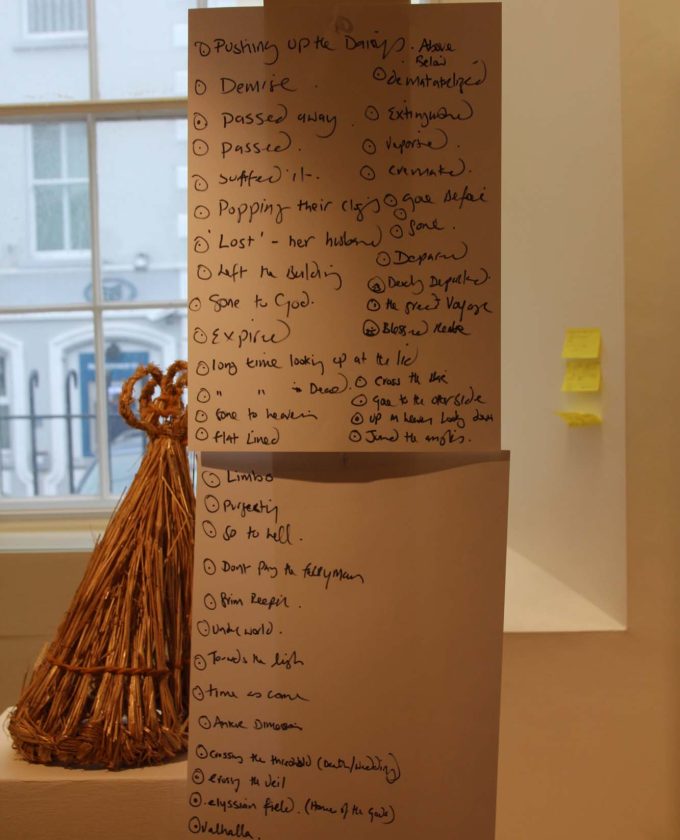 Pushing up the Daisys.
Above
Below
Demise
dematarelized
Passed away
Extinguished
Passed.
Vaporised.
Snuffed it.
Cremated.
Popping their clogs
Gone before
Gone.
'Lost' - her husband
Departed
Left the Building
Dearly Departed.
Gone to God.
the great Voyage
Expired
Blessed
long time looking up at the lid
" " Dead
Cross the
Gone to the other side
Gone to heaven
up in heaven Looking down
Flat Lined
Joined the angles.
Limbo
Purgatory
Go to hell.
Dont Pay the ferry Man
Grim Reeper.
Underworld.
Towards the light
time as come
Dimension
Crossing the threshold (Death/wedding)
the Veil
elyssian field. (Home of the Gods)
Valhalla.